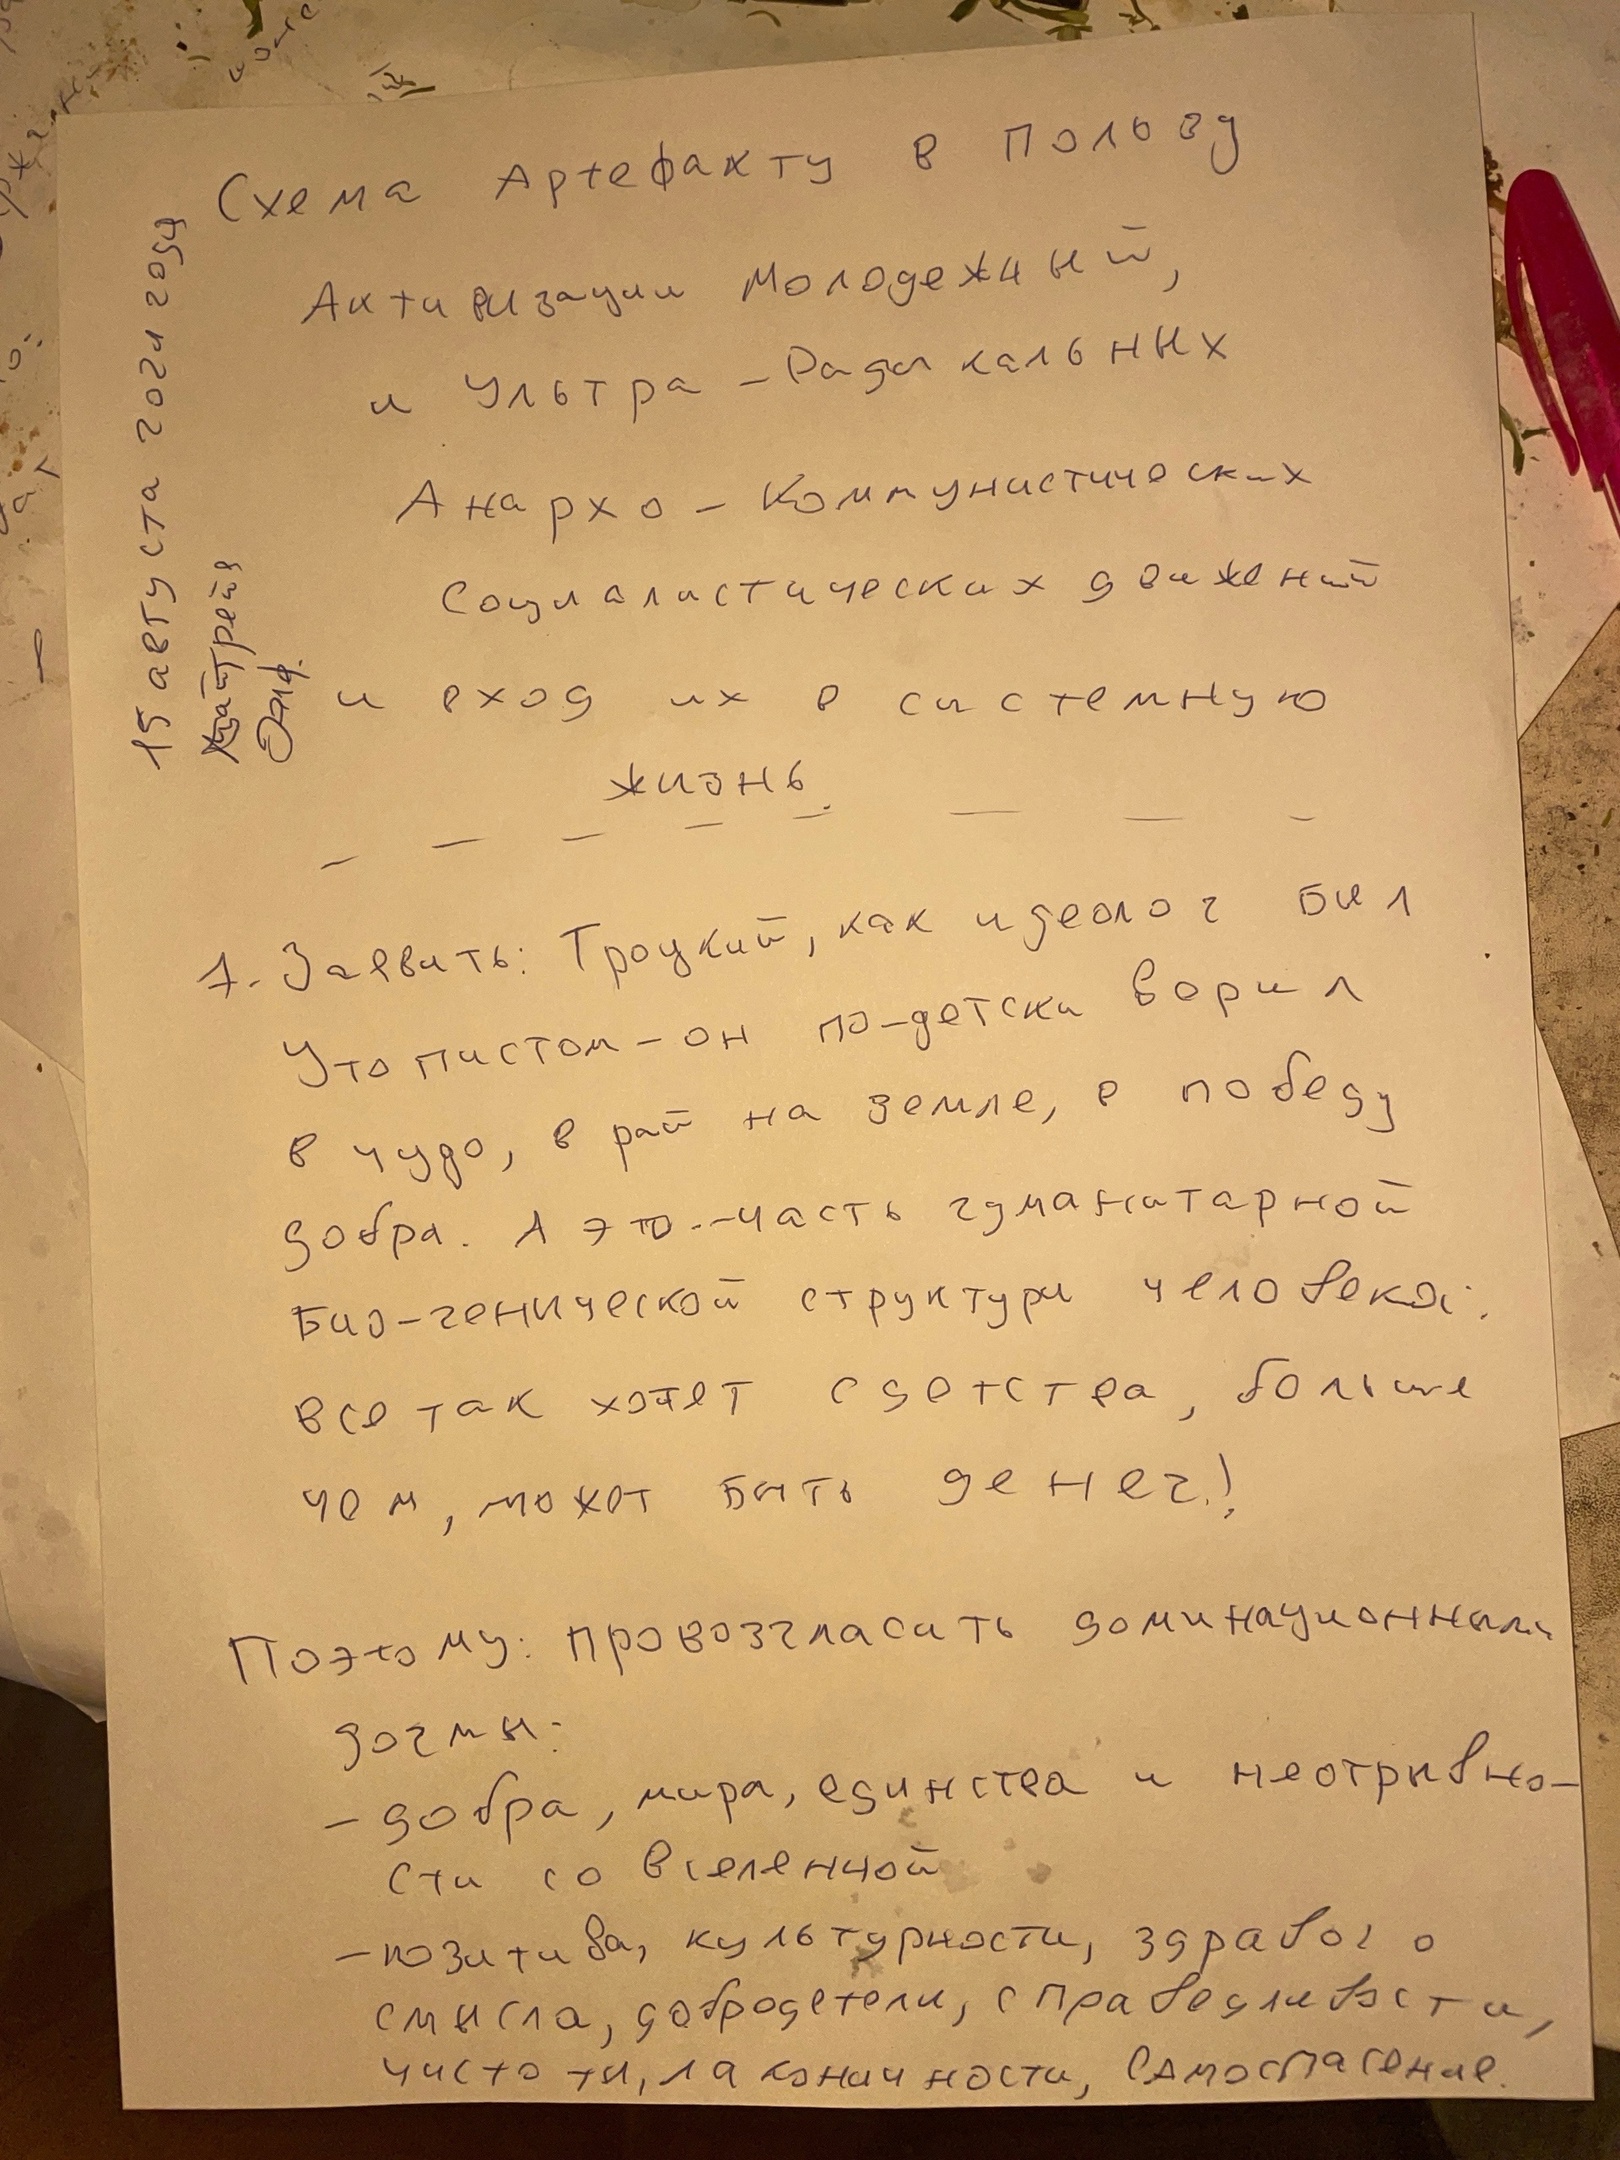 Схема Артефакту в Пользу
Активизации Молодежный,
и Ультра-Радикальных
Анархо-Коммунистических
Социалистических движений
и вход их в системную
жизнь.
15 августа 2021 года
Элф.
1. Заевить: Троцкий, как идеолог был
Утопистом - он по-детски верил
в чудо, в рай на земле, в победу
добра. А это - часть гуманитарной
Био-генической структуры человека:
все так хотет с детства, больше
чем, может быть денег!
Поэтому: провозгласить доминационными
догмы:
- добра, мира, единства и неотрывно-
сти со Вселенной
- позитива, культурности, здравого
смысла, добродетели, справедливости,
чистоты, лаконичности, самоспасение.